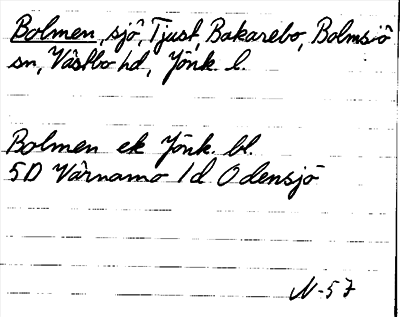 Bolmen, sjö, Tjust, Bakarebo, Bolmsö
sn, Västbo hd, Jönk. l.
Bolmen ek Jönk. bl.
5D Värnamo 1d Odensjö
N-57